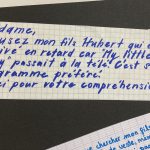 dame,
usez mon fils Hubert qui e
ivé en retard car "My little
y" passait à la télé! C'est s
gramme préféré.
ci pour votre compréhensio
chercher mon fils